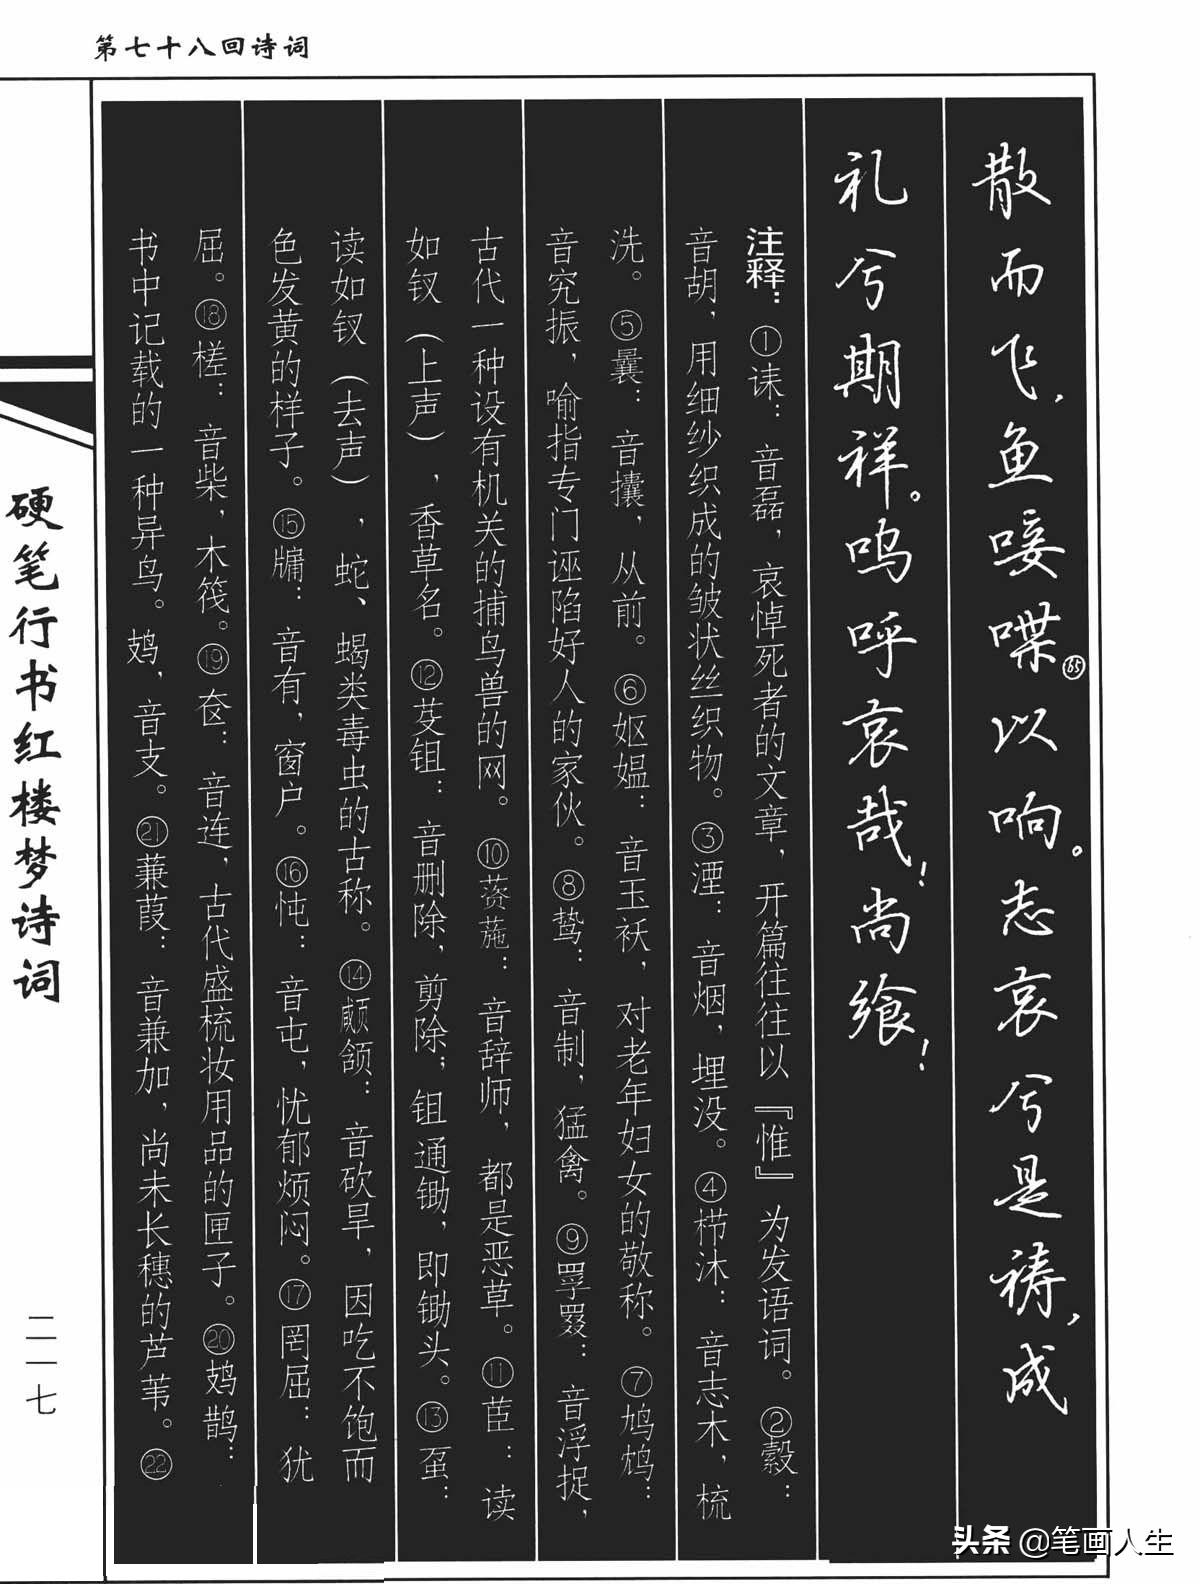 第七十八回诗词
散而飞，鱼唼喋㊿以响。志哀兮是祷，成
礼兮期祥。呜呼哀哉！尚飨！
注释：①诔：音磊，哀悼死者的文章，开篇往往以『惟』为发语词。②縠：
音胡，用细纱织成的皱状丝织物。③湮：音烟，埋没。④栉沐：音志木，梳
洗。⑤曩：音攮，从前。⑥妪媪：音玉袄，对老年妇女的敬称。⑦鸠鸩：
音究振，喻指专门诬陷好人的家伙。⑧鸷：音制，猛禽。⑨罦罬：音浮捉，
古代一种设有机关的捕鸟兽的网。⑩薋葹：音辞师，都是恶草。⑪茝：读
如钗（上声），香草名。⑫芟鉏：音删除，剪除；鉏通锄，即锄头。⑬虿：
读如钗（去声），蛇、蝎类毒虫的古称。⑭顑颔：音砍旱，因吃不饱而
色发黄的样子。⑮牖：音有，窗户。⑯忳：音屯，忧郁烦闷。⑰罔屈：犹
屈。⑱槎：音柴，木筏。⑲奁：音连，古代盛梳妆用品的匣子。⑳鳷鹊：
书中记载的一种异鸟。鳷，音支。㉑蒹葭：音兼加，尚未长穗的芦苇。㉒
硬笔行书红楼梦诗词
二一七
头条 @笔画人生